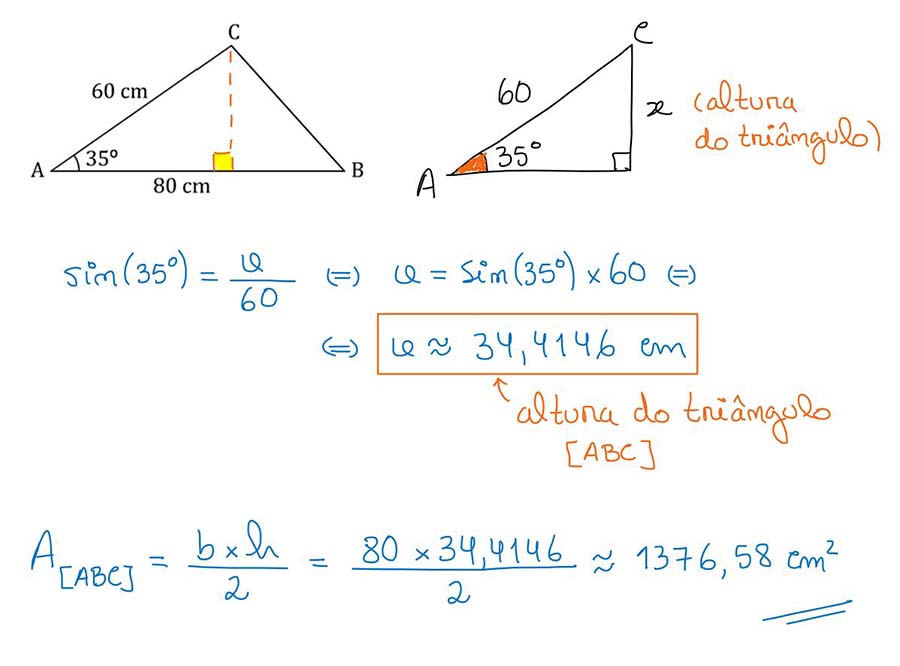 C
60 cm
A 35º B
80 cm
C
60 x (altura
do triângulo)
A 35º
sin(35º) = x/60 ⇔ x = sin(35º) × 60 ⇔
⇔ x ≈ 34,4146 cm
altura do triângulo
[ABC]
A[ABC] = b × h/2 = 80 × 34,4146/2 ≈ 1376,58 cm²